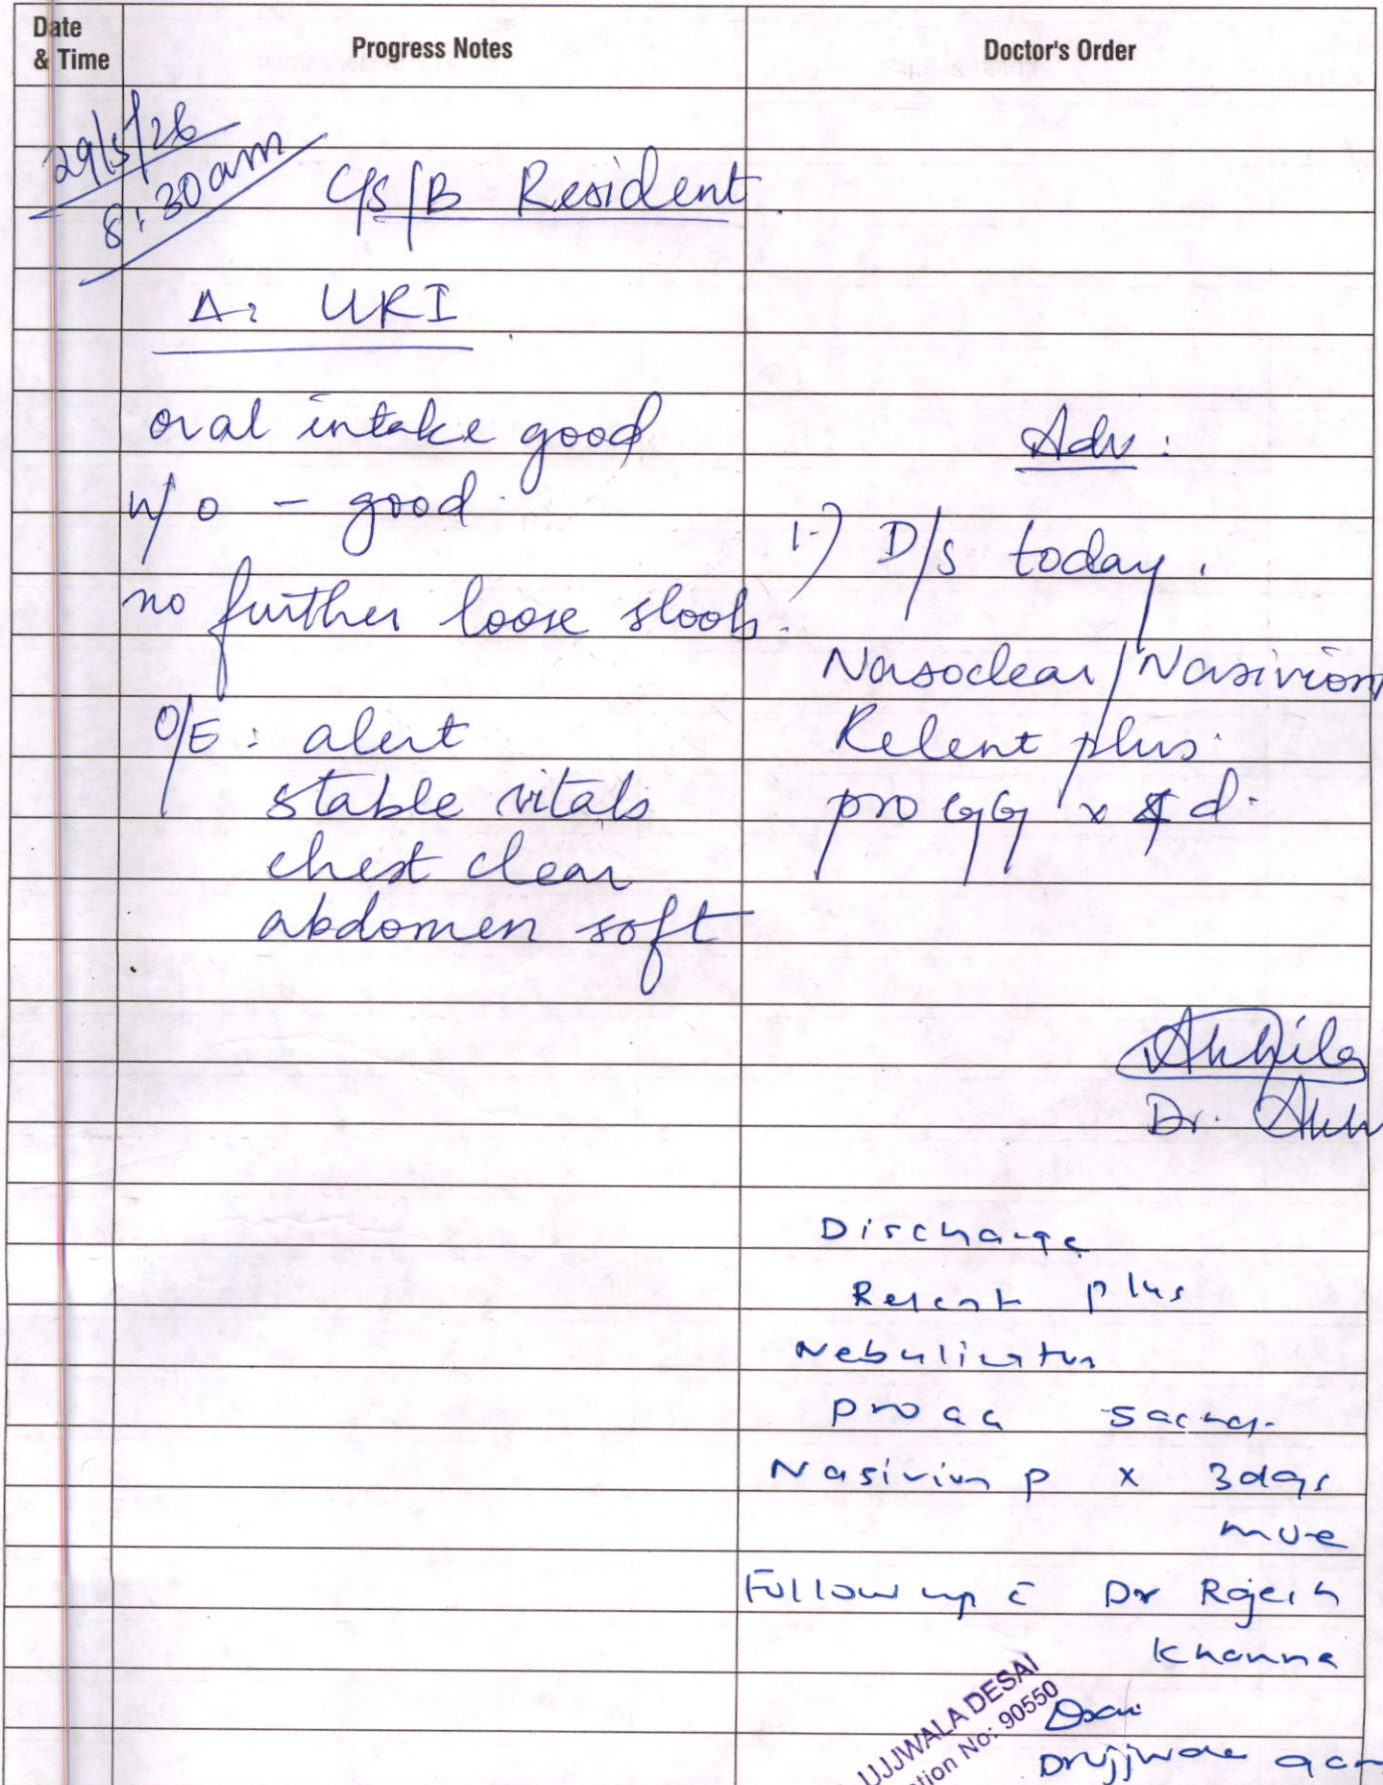 Date
& Time
Progress Notes
Doctor's Order
29/5/26
8:30am
C/S/B Resident
Δ: URI
oral intake good
u/o - good
no further loose stools.
O/E: alert
stable vitals
chest clear
abdomen soft
Adv:
1.) D/S today.
Nasoclear/Nasivion
Relent plus
pro GG x d.
Akhila
Dr. Akh
Discharge
Relent plus
Nebulisation
pro GG sachet
Nasivion P x 3days
more
Follow up c̄ Dr Rajesh
Khanna
UJJWALA DESAI
tion No: 90550
Dr Ujjwala